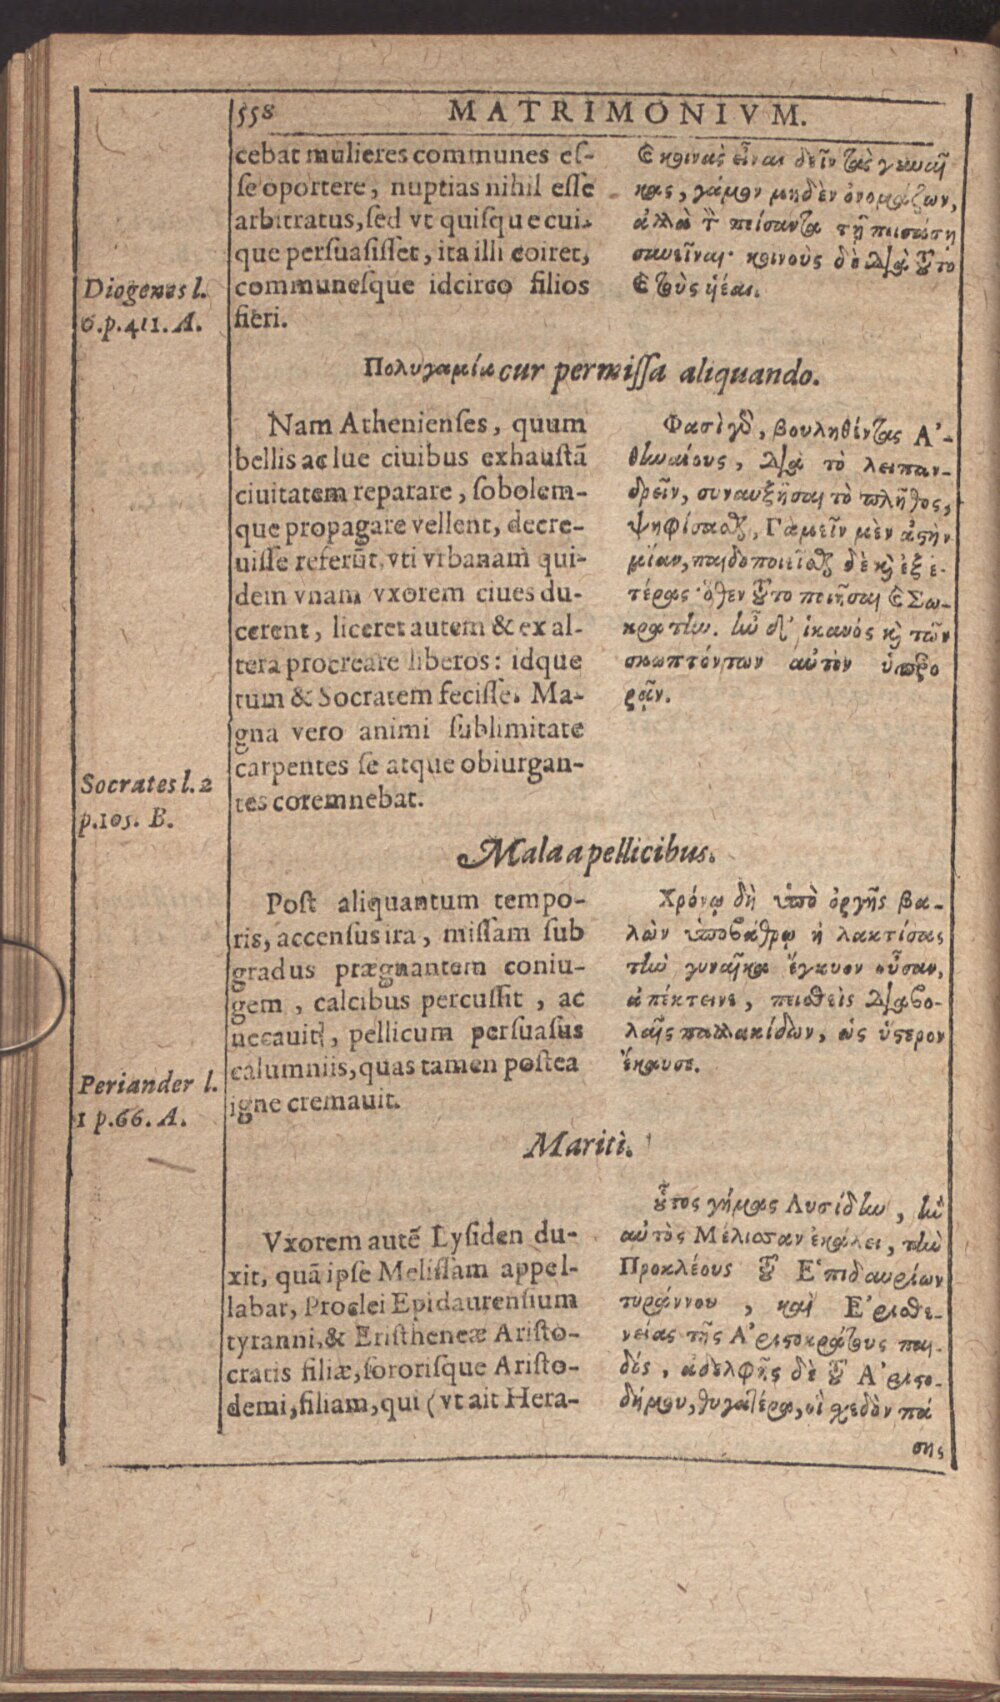 558 MATRIMONIVM.
cebat mulieres communes es-
se oportere, nuptias nihil esse
arbitratus, sed vt quisque cui-
que persuasisset, ita illi coiret,
communesque idcirco filios
fieri.
Diogenes l.
6.p.411.A.
κοινὰς εἶναι δεῖν τὰς γυναῖ
κας, γάμον μηδὲν ὀνομάζων,
ἀλλὰ τ πείσαντα τῇ πεισθείσῃ
συνεῖναι· κοινοὺς δὲ διὰ τοῦτο
καὶ τοὺς ὑέας.
Πολυγαμία cur permissa aliquando.
Nam Athenienses, quum
bellis ac lue ciuibus exhaustā
ciuitatem reparare, sobolem-
que propagare vellent, decre-
uisse referūt, vti vrbanam qui-
dem vnam vxorem ciues du-
cerent, liceret autem & ex al-
tera procreare liberos: idque
tum & Socratem fecisse. Ma-
gna vero animi sublimitate
carpentes se atque obiurgan-
tes cotemnebat.
Socrates l.2
p.105. B.
Φασὶ γὸ, βουληθέντας Ἀ-
θηναίους, διὰ τὸ λειπαν-
δρεῖν, συναυξῆσαι τὸ πλῆθος,
ψηφίσασθ, Γαμεῖν μὲν ἀστὴν
μίαν, παιδοποιεῖσθ δὲ κὶ ἐξ ἑ-
τέρας· ὅθεν τοῦτο ποιῆσαι καὶ Σω-
κράτην. ἦν δ' ἱκανὸς κὶ τῶν
σκωπτόντων αὐτὸν ὑπερο
ρᾷν.
Mala a pellicibus.
Post aliquantum tempo-
ris, accensus ira, missam sub
gradus prægnantem coniu-
gem, calcibus percussit, ac
necauit, pellicum persuasus
calumniis, quas tamen postea
igne cremauit.
Periander l.
1 p.66. A.
Χρόνῳ δὴ ὑπὸ ὀργῆς βα-
λὼν ὑποβάθρῳ ἢ λακτίσας
τὴν γυναῖκα ἔγκυον οὖσαν,
ἀπέκτεινε, πεισθεὶς διαβο-
λαῖς παλλακίδων, ὡς ὕστερον
ἔκαυσε.
Mariti.
Vxorem autē Lysiden du-
xit, quā ipse Melissam appel-
labat, Proclei Epidaurensium
tyranni, & Eristheneæ Aristo-
cratis filiæ, sororisque Aristo-
demi, filiam, qui (vt ait Hera-
οὗτος γήμας Λυσίδην, ἣν
αὐτὸς Μέλισσαν ἐκάλει, τὴν
Προκλέους τοῦ Ἐπιδαυρίων
τυράννου, καὶ Ἐρισθε-
νείας τῆς Ἀριστοκράτους παι-
δός, ἀδελφῆς δὲ τοῦ Ἀριστο-
δήμου, θυγατέρα, οἳ σχεδὸν πά
σης